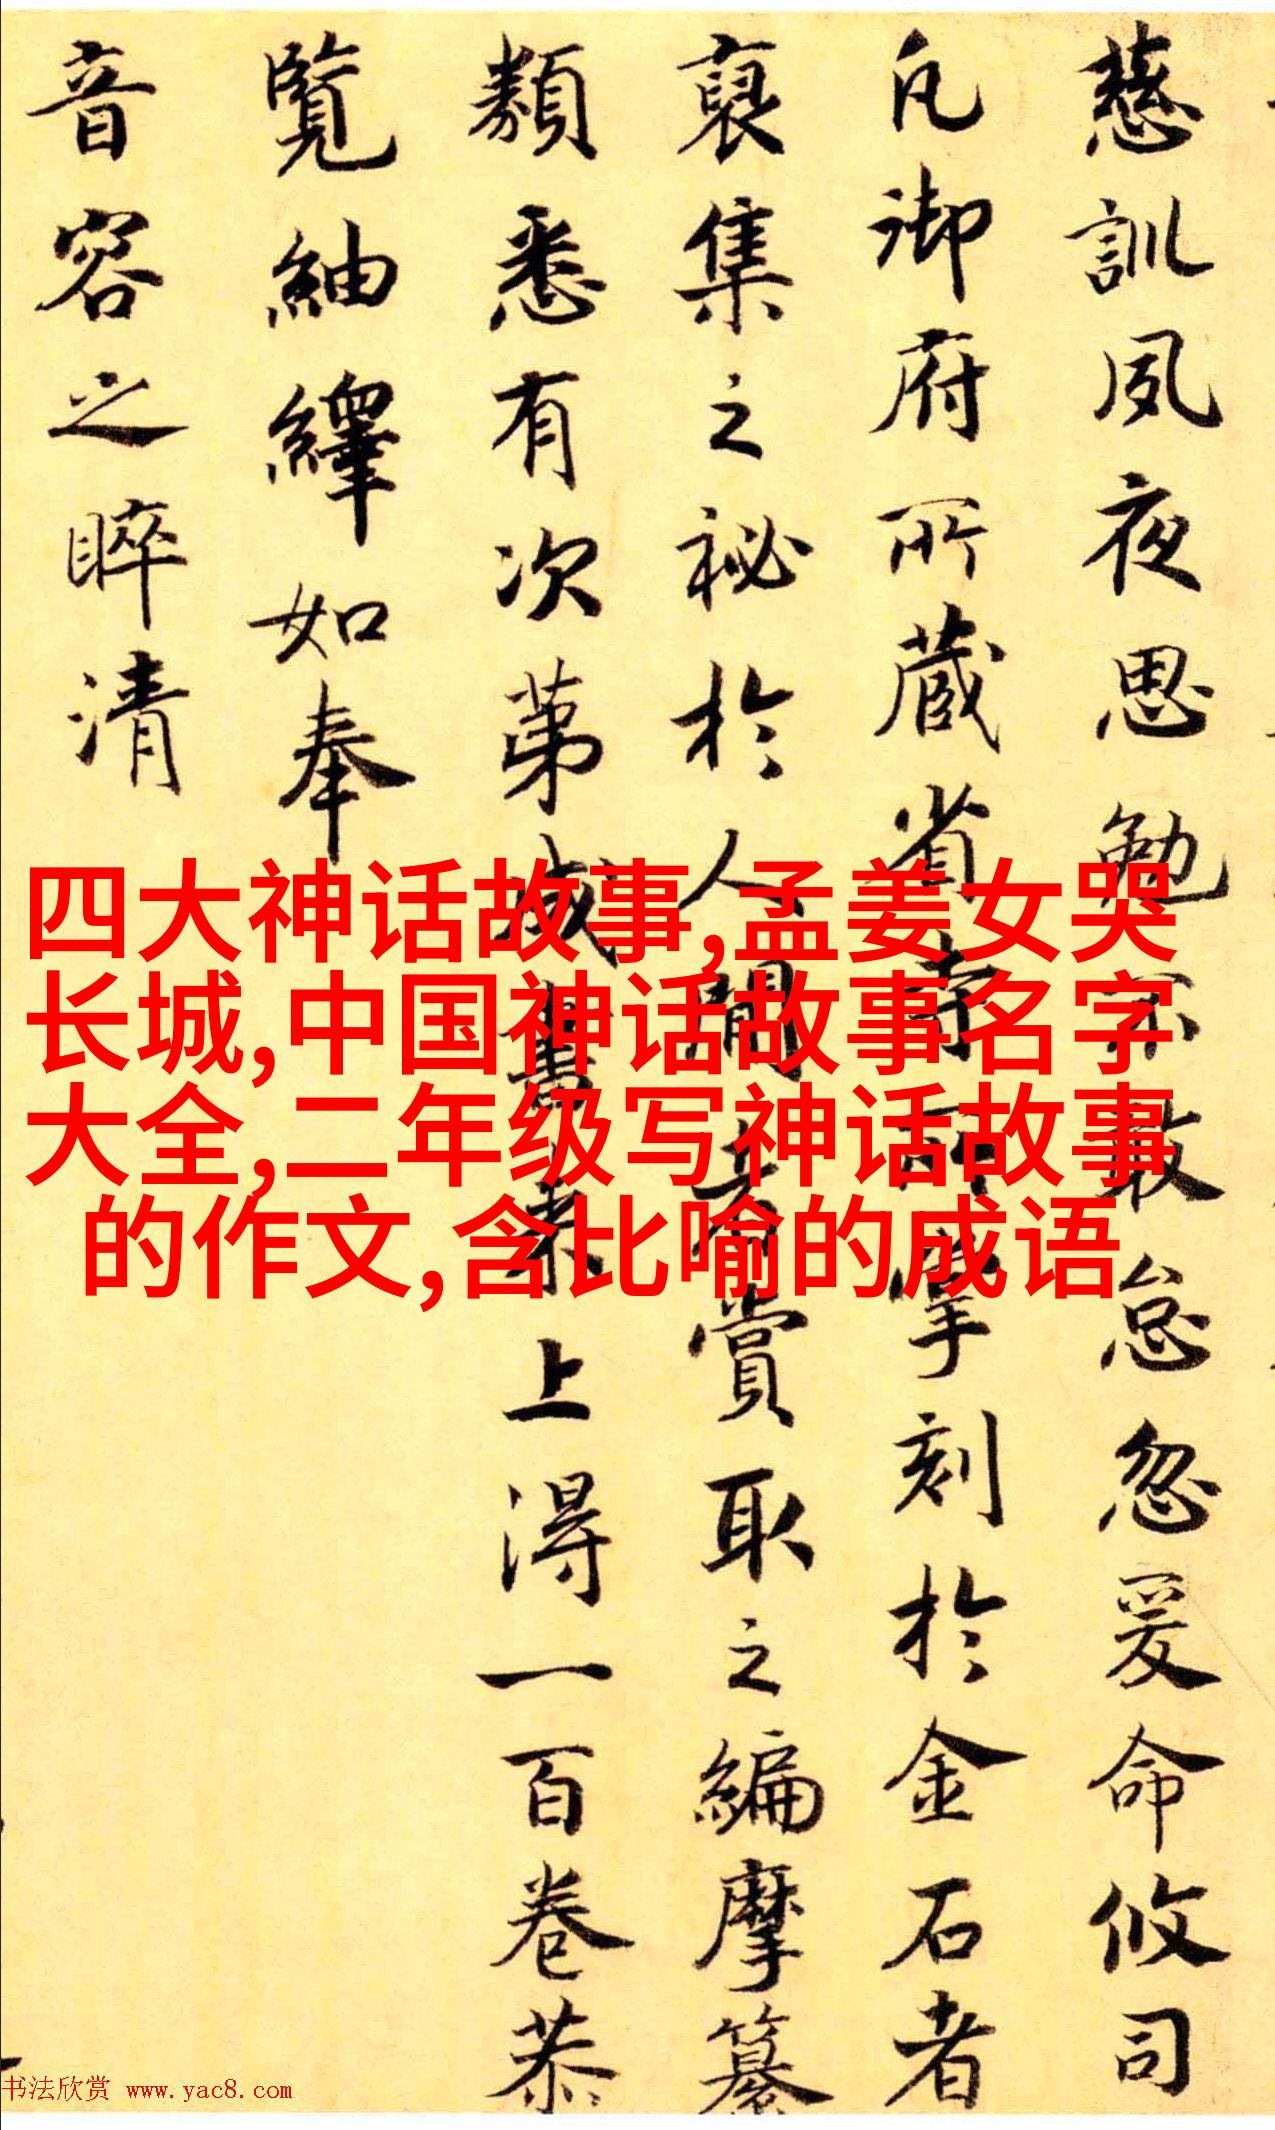 慈訓夙夜思勉敢怠忽爰命攸司
凡御府所藏省寺所掌刻於金石者
裒集之祕於人間賞取之編摩纂
類悉有次苐成書來上得一百卷恭
覽紬繹如奉
音容之睟清
四大神话故事,孟姜女哭
长城,中国神话故事名字
大全,二年级写神话故事
的作文,含比喻的成语
书法欣赏 www.yac8.com